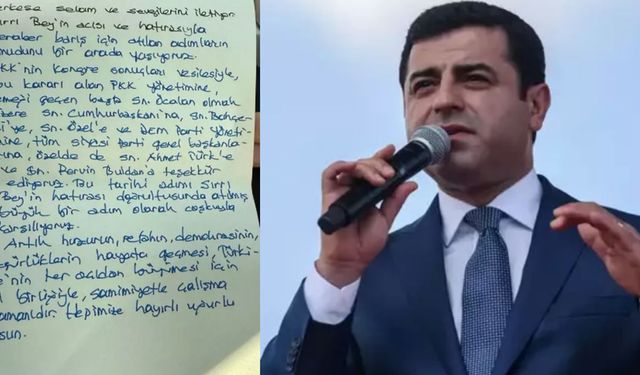 erkese selam ve sevgilerini iletiyor
ırrı Bey'in acısı ve hatırasıyla
eraber barış için atılan adımların
mudunu bir arada yaşıyoruz.
KK'nin kongre sonuçları vesilesiyle,
bu kararı alan PKK yönetimine,
emeği geçen başta Sn. Öcalan olmak
zere Sn. Cumhurbaşkanı'na, Sn. Bahçe-
li'ye, Sn. Özel'e ve DEM Parti Yöneti-
mine, tüm siyasi parti genel başkanla-
rına, özelde de Sn. Ahmet Türk'e
ve Sn. Pervin Buldan'a teşekkür
ediyoruz. Bu tarihi adımı Sırrı
Bey'in hatırası doğrultusunda atılmış
büyük bir adım olarak coşkuyla
karşılıyoruz.
Artık huzurun, refahın, demokrasinin,
gürlüklerin hayata geçmesi, Türki-
e'nin her açıdan büyümesi için
l birliğiyle, samimiyetle çalışma
amanıdır. Hepimize hayırlı uğurlu
sun.